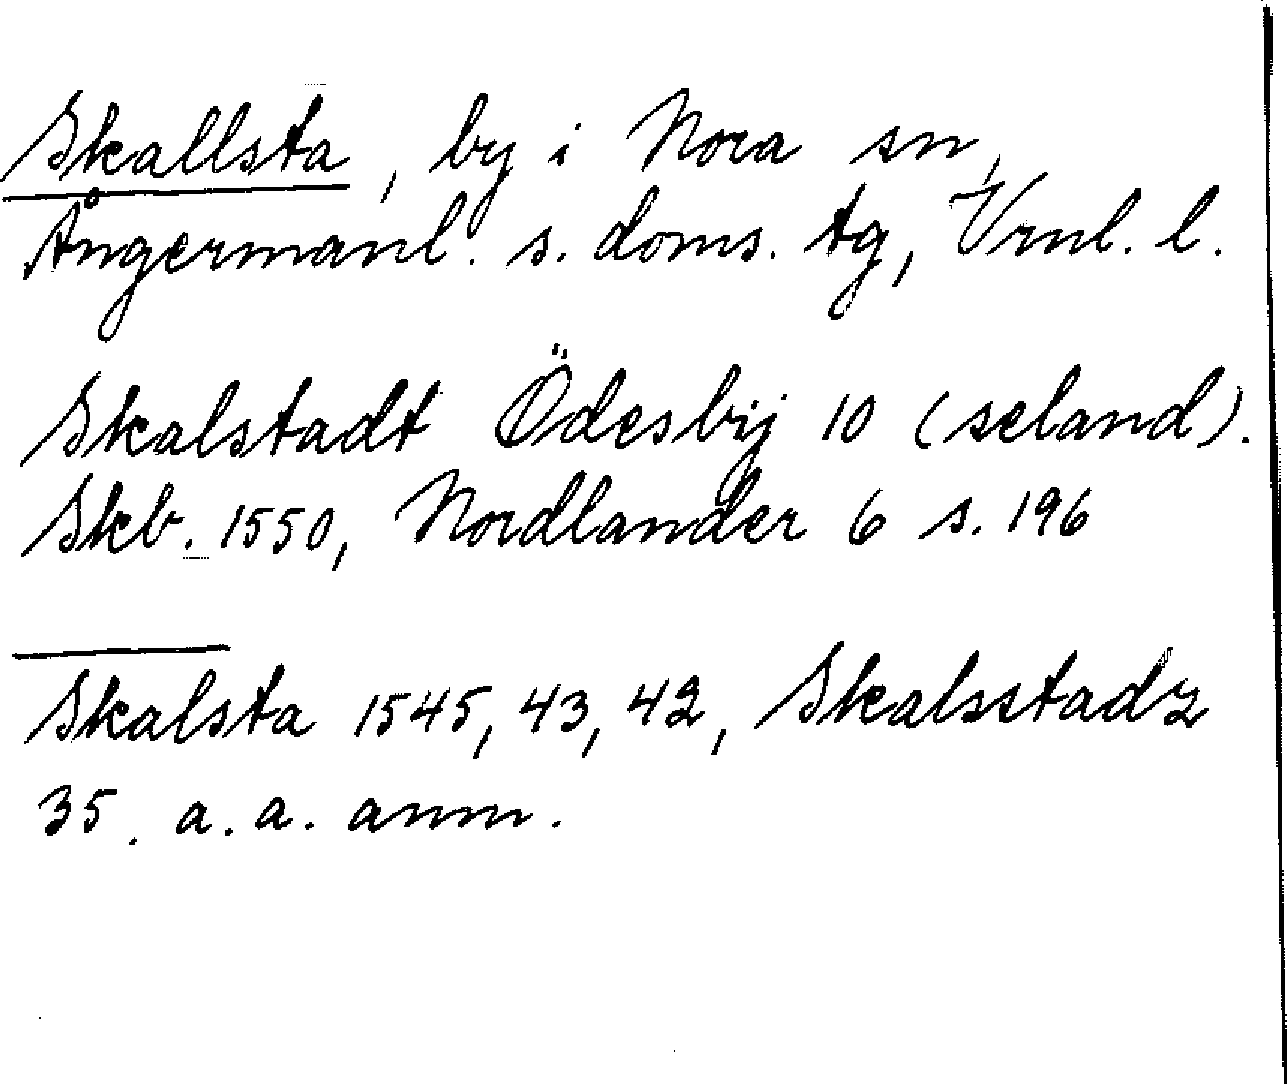 Skallsta, by i Nora sn,
Ångermanl. s. doms. tg, Vrnl. l.
Skalstadt Ödesbij 10 (seland).
Skb. 1550, Nordlander 6 s. 196
Skalsta 1545, 43, 42, Skalsstadz
35. a. a. anm.